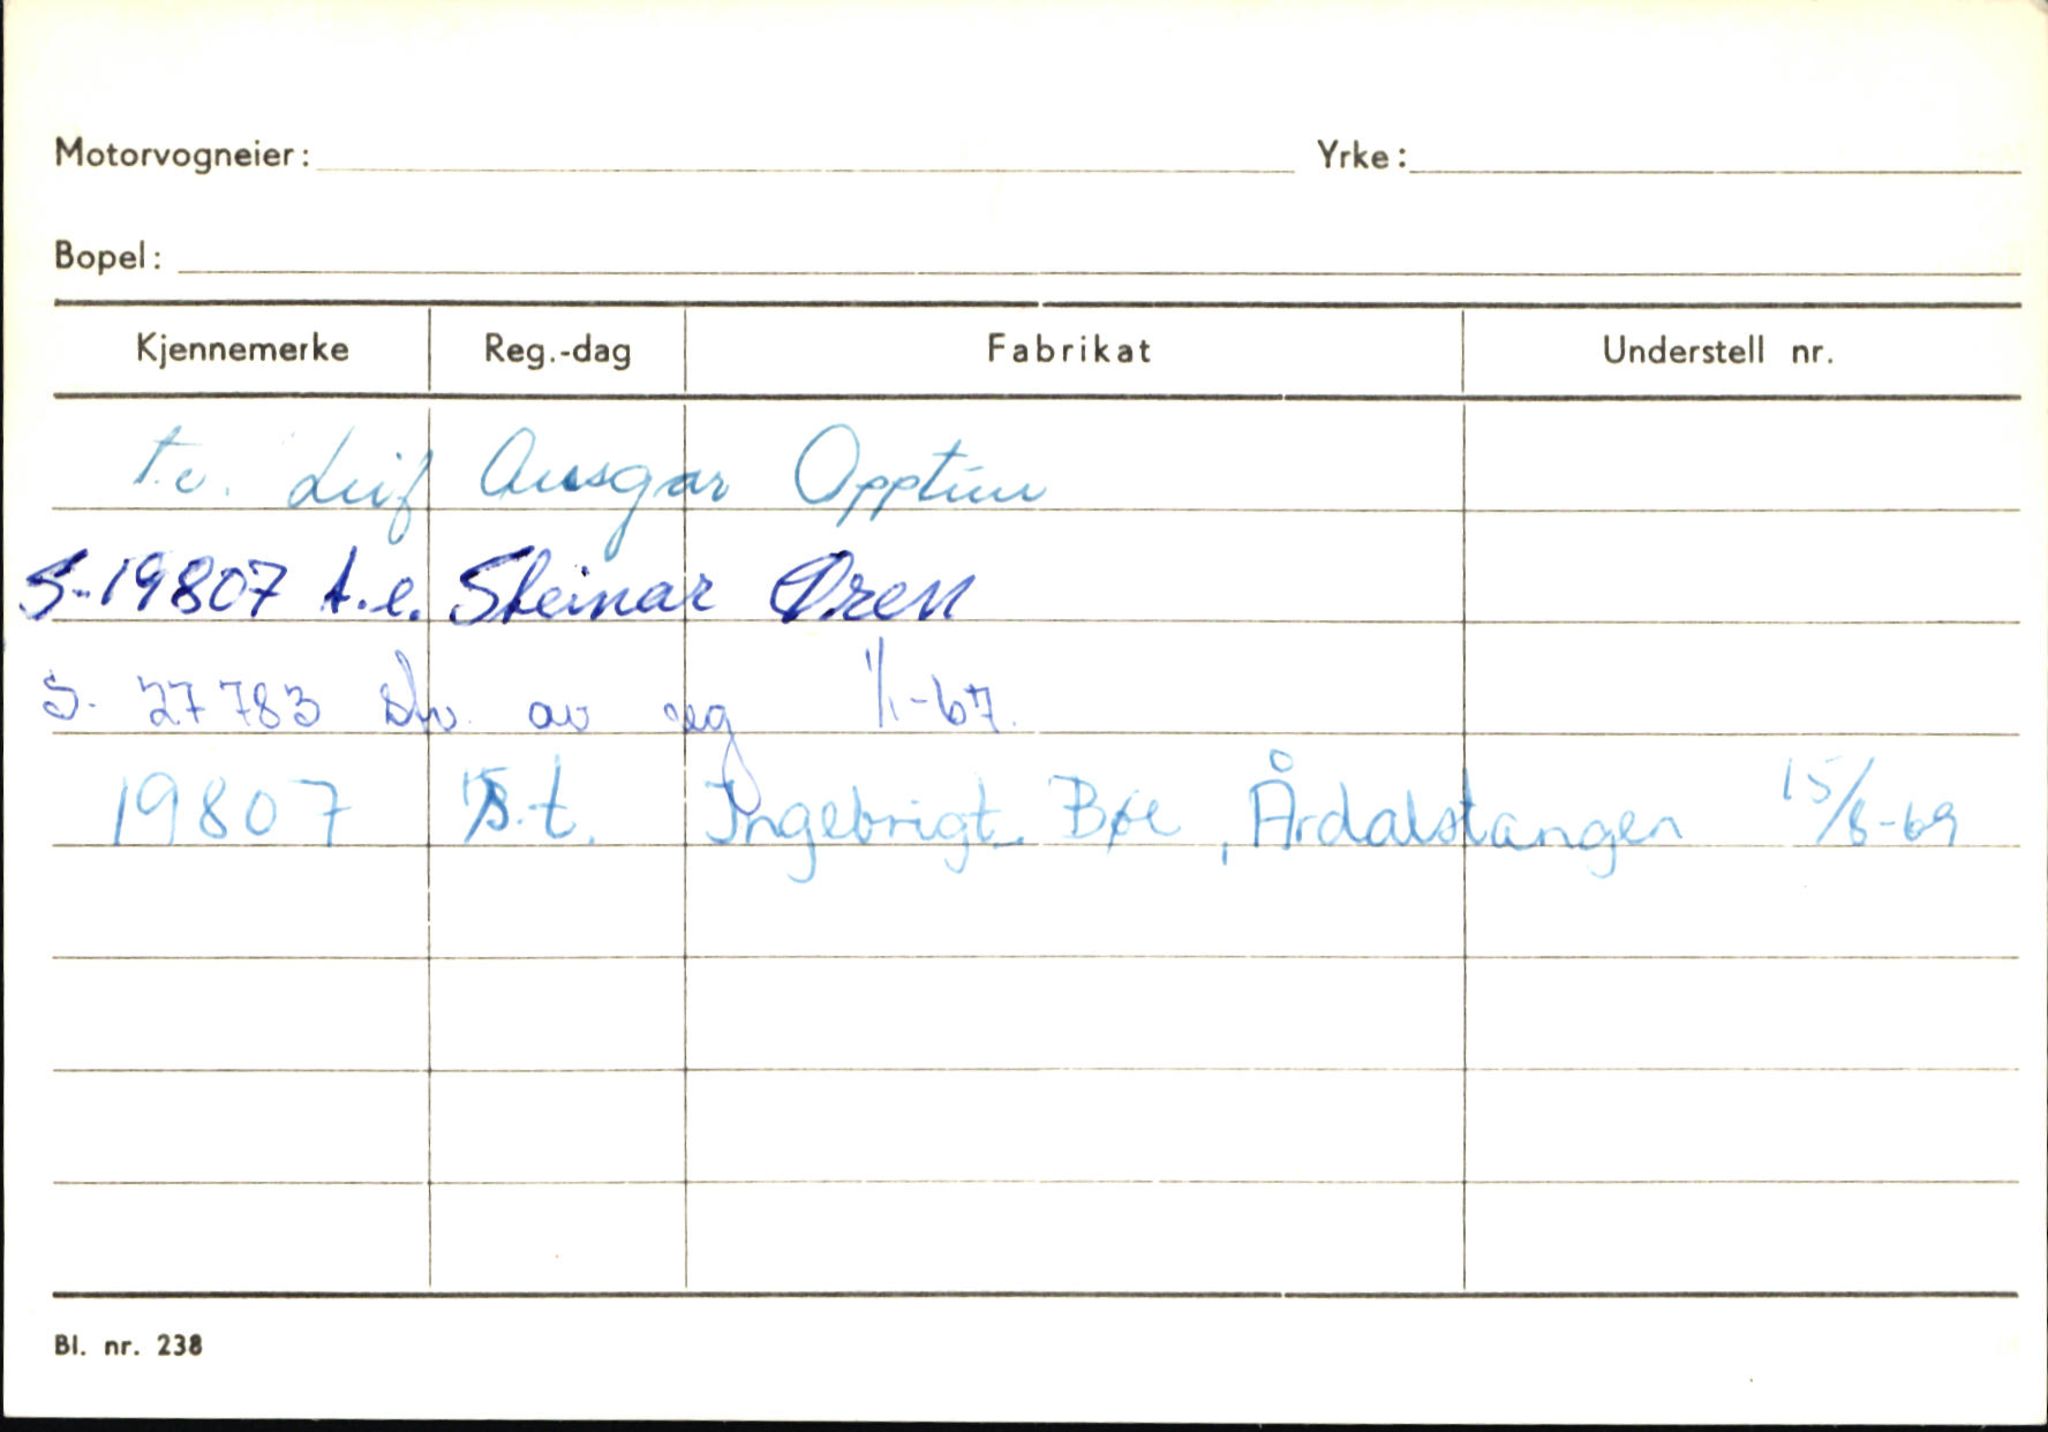 Motorvogneier: Yrke:
Bopel:
Kjennemerke Reg.-dag Fabrikat Understell nr.
t.e. Leif Ansgar Opptun
S-19807 t.e. Steinar Øren
S. 27783 av reg 1/1-67.
19807 s.t. Ingebrigt Bøe, Årdalstangen 15/8-69
Bl. nr. 238